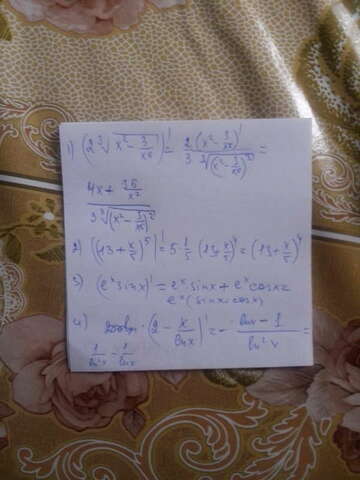 1) (2 ∛(x² - 3/x⁶))' = 2(x² - 3/x⁶)' / 3 ∛((x² - 3/x⁶)²) =
(4x + 36/x⁷) / 3∛((x² - 3/x⁶)²)
2) ((13 + x/5)⁵)' = 5 · 1/5 (13 + x/5)⁴ = (13 + x/5)⁴
3) (eˣ sin x)' = eˣ sin x + eˣ cos x =
eˣ (sin x + cos x)
4) (2 - x/ln x)' = - (ln x - 1)/ln² x =
1/ln² x - 1/ln x